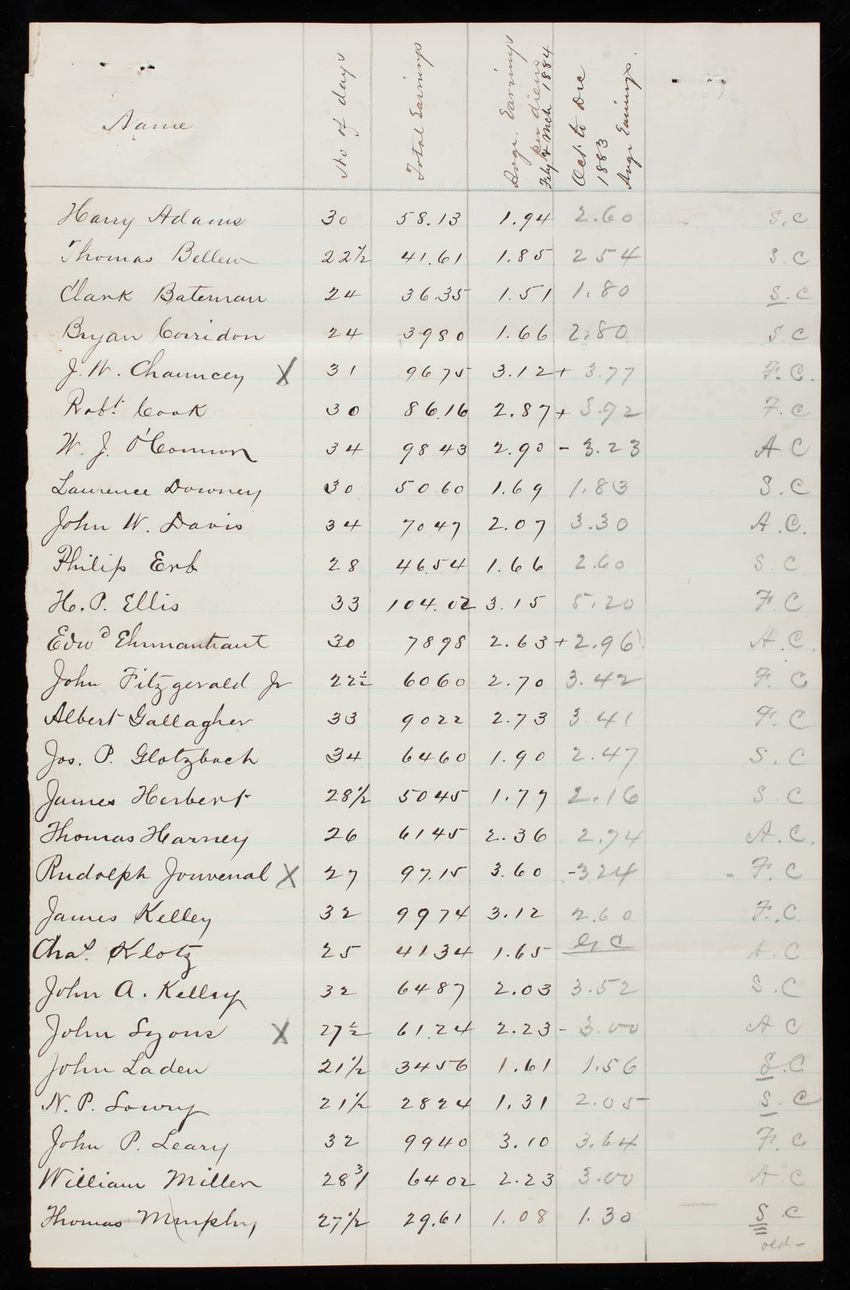 Name No of days Total Earnings Avge. Earnings per diem Feby & Mch 1884 Oct. to Dec 1883 Avge Earnings.
Harry Adams 30 58.13 1.94 2.60 S.C
Thomas Bellew 22 1/2 41.61 1.85 2 54 S C
Clark Bateman 24 36.35 1.51 1.80 S.C
Bryan Corridon 24 3980 1.66 2.80 S C
J. W. Chauncey X 31 9675 3.12 + 3.77 F.C.
Robt. Cook 30 86.16 2.87 + 3.92 F.C
W. J. O'Connor 34 98 43 2.90 - 3.23 A C
Laurence Downey 30 50.60 1.69 1.83 S.C
John W. Davis 34 7047 2.07 3.30 A.C.
Philip Erb 28 46.54 1.66 2.60 S C
H. P. Ellis 33 104.02 3.15 5.20 F.C
Edwd Ehrmantraut 30 7898 2.63 + 2.96 A.C.
John Fitzgerald Jr 22 1/2 6060 2.70 3.42 F. C
Albert Gallagher 33 9022 2.73 3.41 F.C
Jos. P. Glotzbach 34 6460 1.90 2.47 S.C
James Herbert 28 1/2 5045 1.77 2.16 S C
Thomas Harney 26 6145 2.36 2.74 A.C.
Rudolph Jouvenal X 27 97.15 3.60 -3 24 - F.C
James Kelley 32 9974 3.12 2.60 F.C
Chas. Klotz 25 4134 1.65 G C A.C
John A. Kelley 32 6487 2.03 3.52 S.C
John Lyons X 27 1/2 61.24 2.23 - 3.00 A C
John Laden 21 1/2 3456 1.61 1.56 S.C
N. P. Lowry 21 1/2 2824 1.31 2.05 S.C
John P. Leary 32 9940 3.10 3.64 F.C
William Miller 28 3/ 6402 2.23 3.00 A C
Thomas Murphy 27 1/2 29.61 1.08 1.30 S.C
old-